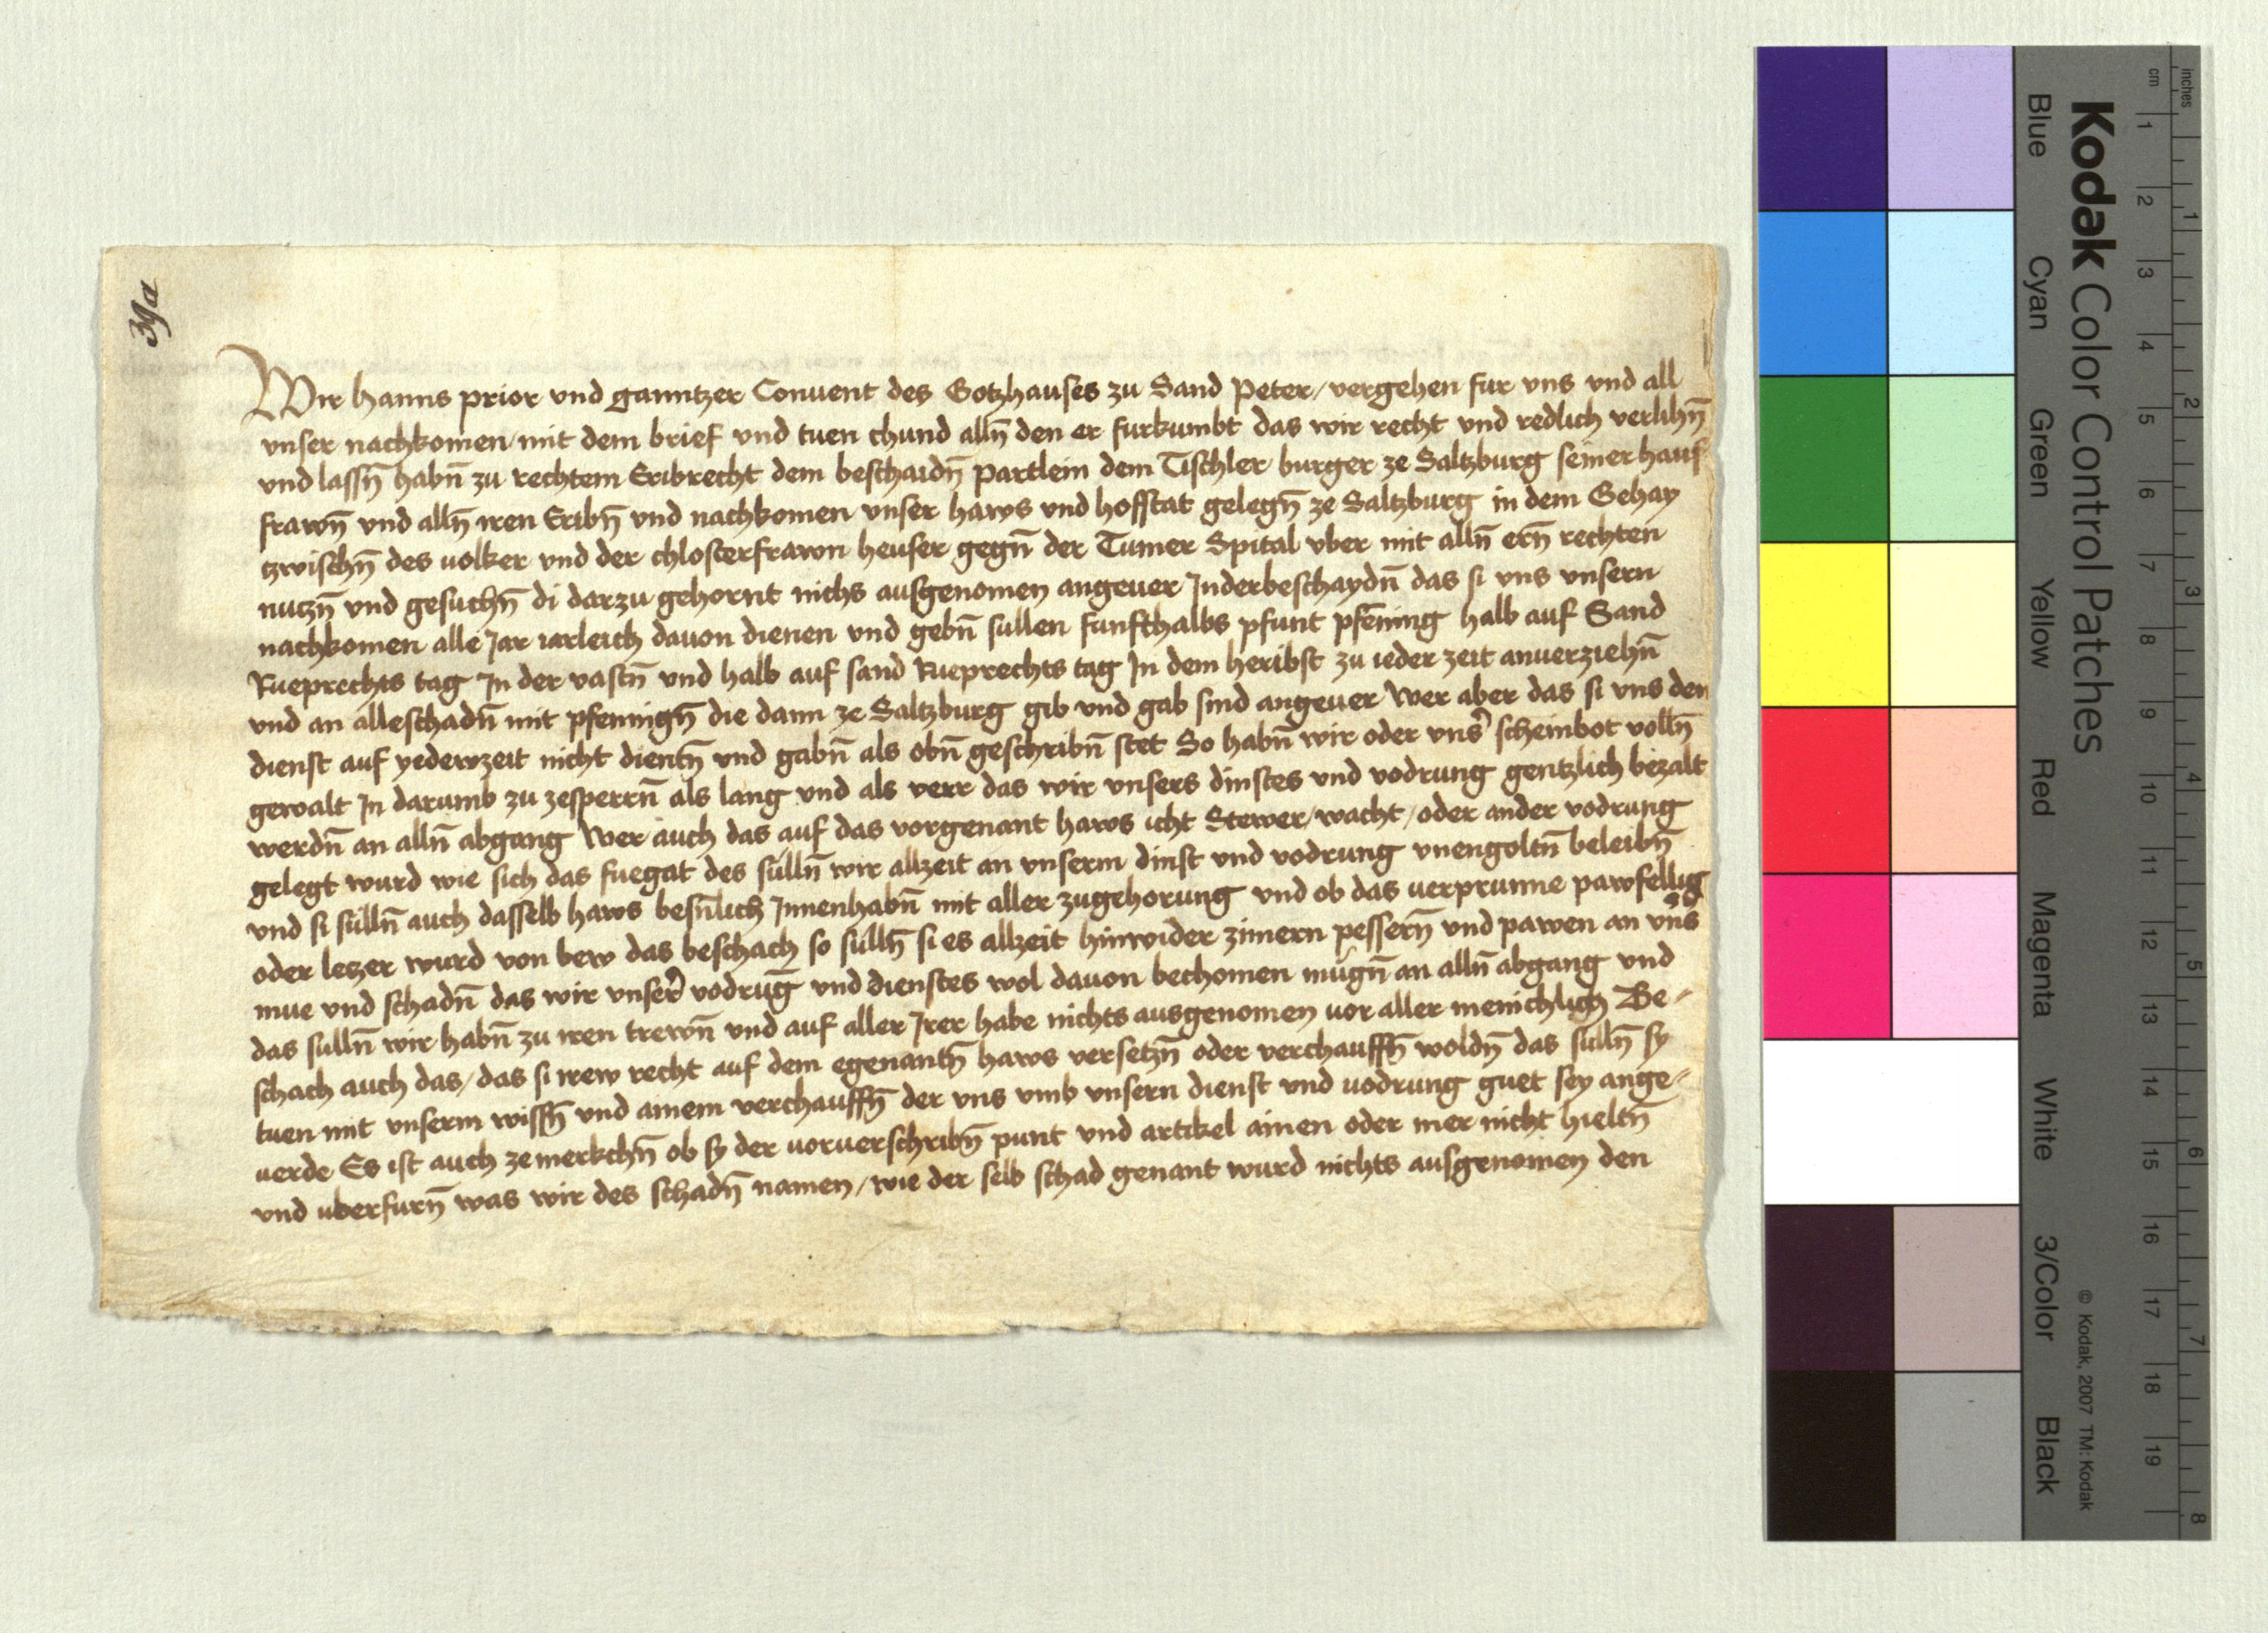 39a
Wir hanns prior vnd ganntzer Conuent des Gotzhauses zu Sand Peter / vergehen fur vns vnd all
vnser nachkomen / mit dem brief vnd tuen chund alln̄ den er furkumbt das wir recht vnd redlich verlihn̄
vnd lassn̄ habn̄ zu rechtem Eribrecht dem beschaidn̄ partlein dem Tischler burger ze Saltzburg seiner hauf
frawn̄ vnd alln̄ iren Eribn̄ vnd nachkomen vnser haws vnd hofstat gelegn̄ ze Saltzburg in dem Gehay
tzwischn̄ des uolker vnd der chlosterfrawn heuser gegn̄ der Tumer Spital vber mit alln̄ ern̄ rechten
nutzn̄ vnd gesuchn̄ di darzu gehornt nichs ausgenomen angeuer Jnderbeschaydn̄ das si vns vnsern
nachkomen alle Jar iarleich dauon dienen vnd gebn̄ sullen funfthalbs pfunt pfen̄ing halb auf Sand
Rueprechts tag Jn der vastn̄ vnd halb auf sand Rueprechts tag Jn dem heribst zu ieder zeit anuerziehn̄
vnd an alleschadn̄ mit pfenningn̄ die dann ze Saltzburg gib vnd gab sind angeuer Wer aber das si vns den
dienst auf yederzeit nicht dientn̄ vnd gabn̄ als obn̄ geschribn̄ stet So habn̄ wir oder vnsˀ scheinbot volln̄
gewalt Jn darumb zu zesperrn̄ als lang vnd als verr das wir vnsers dinstes vnd vodrung gentzlich bezalt
werdn̄ an alln̄ abgang Wer auch das auf das vorgenant haws icht Stewer / wacht / oder ander vodrung
gelegt wurd wie sich das fuegat des sulln̄ wir allzeit an vnserm dinst vnd vodrung vnengoltn̄ beleibn̄
vnd si sulln̄ auch dasselb haws besn̄lich Jnnenhabn̄ mit aller zugehorung vnd ob das uerprunne pawfellig
oder lezer wurd von bew das beschach so sulln̄ si es allzeit hinwider zimern pessern̄ vnd pawen an vn̄s
mue vnd schadn̄ das wir vnserˀ vodrūg vnd dienstes wol dauon bechomen mugn̄ an alln̄ abgang vnd
das sulln̄ wir habn̄ zu iren trewn̄ vnd auf aller Jrer habe nichts ausgenomen vor aller menichlich Be-
schach auch das / das si irew recht auf dem egenantn̄ haws versetzn̄ oder verchauffn̄ woldn̄ das sulln̄ sy
tuen mit vnserm wissn̄ vnd ainem verchauffn̄ der vns vmb vnsern dienst vnd uodrung guet sey ange-
uerde Es ist auch zemerkchn̄ ob sy der uoruerschribn̄ punt vnd artikel ainen oder mer nicht hieltn̄
vnd uberfurn̄ was wir des schadn̄ namen / wie der selb schad genant wurd nichts ausgenomen den
Kodak Color Control Patches
Blue Cyan Green Yellow Red Magenta White 3/Color Black
© Kodak, 2007 TM: Kodak
cm 1 2 3 4 5 6 7 8 9 10 11 12 13 14 15 16 17 18 19
inches 1 2 3 4 5 6 7 8